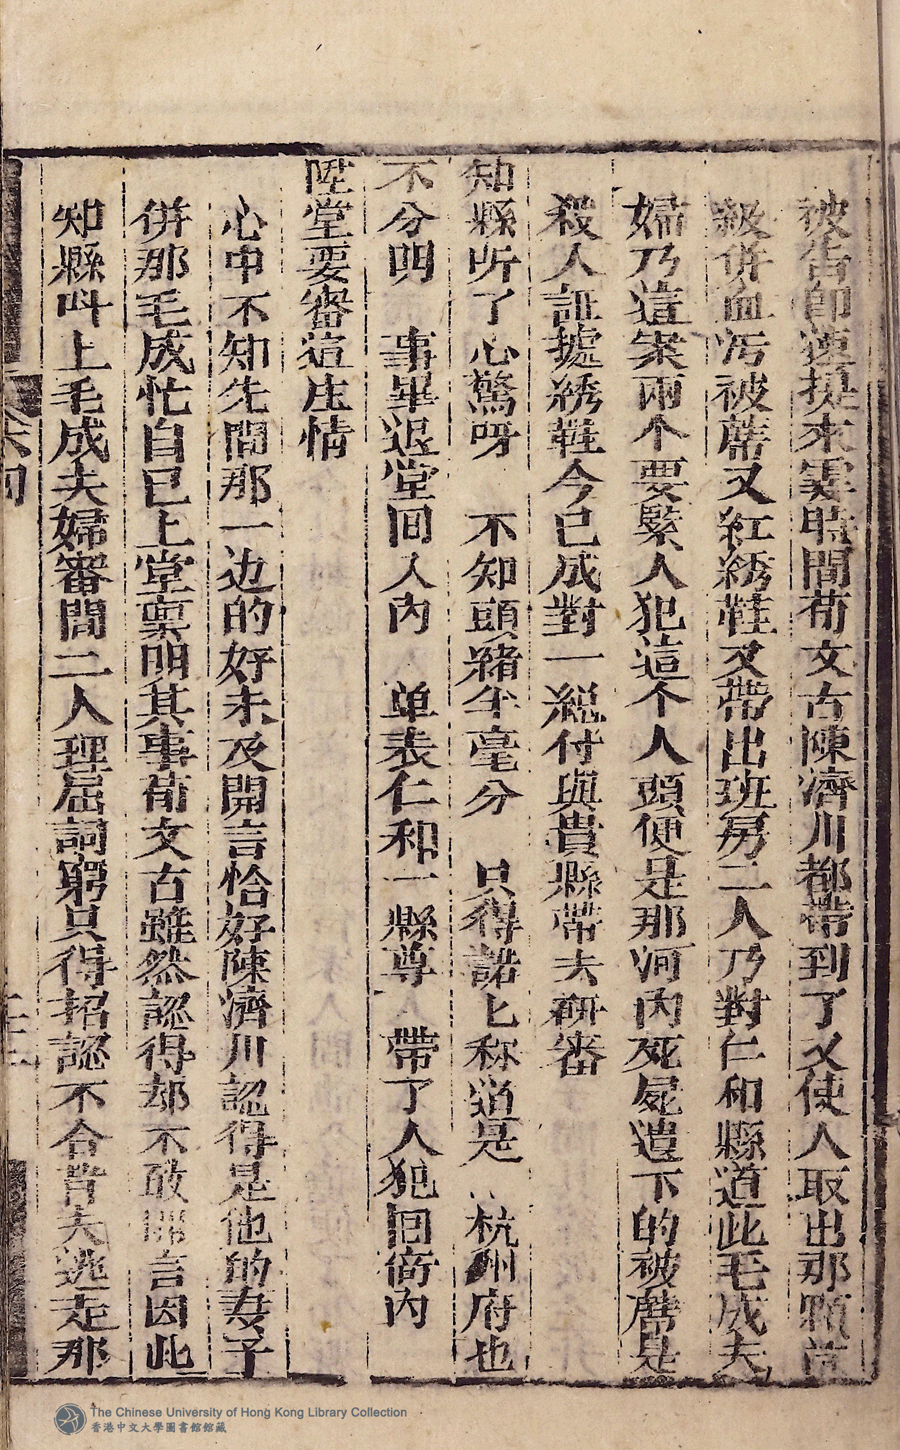 被告即速提來霎時間荀文古陳濟川都帶到了又使人取出那顆首
級併血污被蓆又紅綉鞋又帶出班房二人乃對仁和縣道此毛成夫
婦乃這案兩个要緊人犯這个人頭便是那河内死屍遺下的被蓆是
殺人証據綉鞋今已成對一総付與貴縣帶去研審
知縣听了心驚呀 不知頭緒半毫分 只得諾匕称道是 杭州府也
不分明 事畢退堂囬入內 单表仁和一縣尊 帶了人犯回衙內
陞堂要審這庄情
心中不知先問那一边的好未及開言恰好陳濟川認得是他的妻子
併那毛成忙自已上堂禀明其事荀文古雖然認得却不敢開言因此
知縣呌上毛成夫婦審問二人理屈詞窮只得招認不合背夫逃走那
卷四
The Chinese University of Hong Kong Library Collection
香港中文大學圖書館館藏